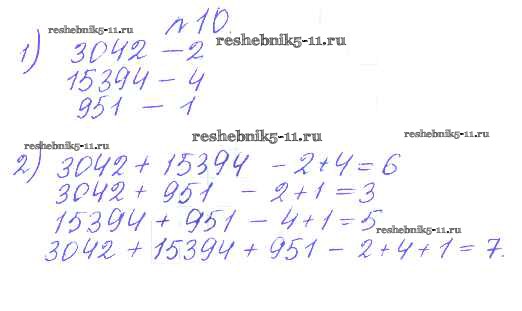 №10.
reshebnik5-11.ru
reshebnik5-11.ru
1) 3042 - 2
15394 - 4
951 - 1
reshebnik5-11.ru
reshebnik5-11.ru
reshebnik5-11.ru
2) 3042 + 15394 - 2+4 = 6
3042 + 951 - 2+1 = 3
15394 + 951 - 4+1 = 5
reshebnik5-11.ru
3042 + 15394 + 951 - 2+4+1 = 7.